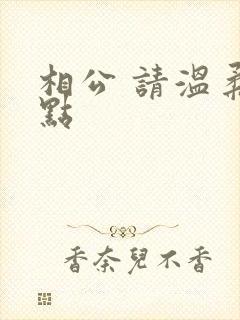 相公 請溫柔
點
香奈兒不香